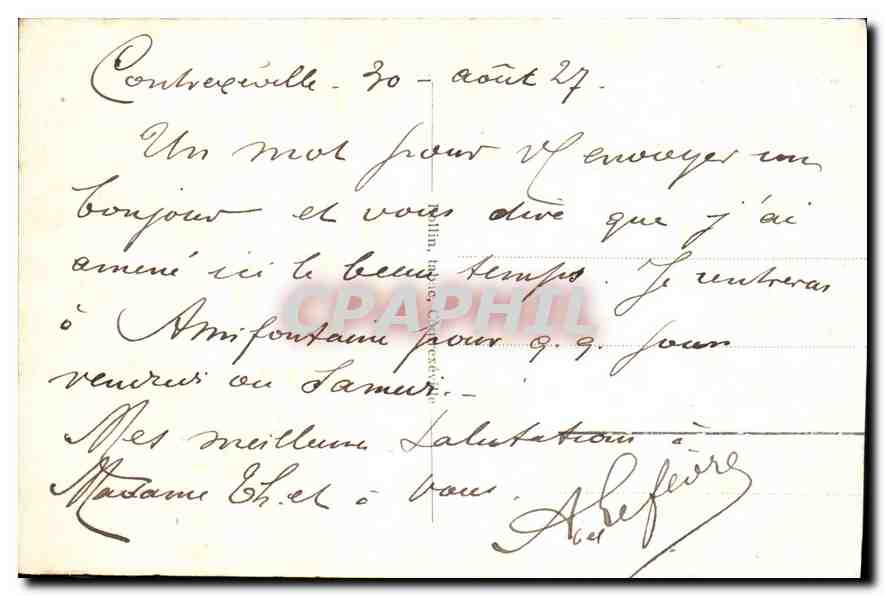 Contrexéville - 30 - août 27.
Un mot pour v/ envoyer un
bonjour et vous dire que j'ai
amené ici le beau temps. Je rentrerai
à Amifontaine pour q.q. jours
vendredi ou samedi. -
Mes meilleures salutations à
Madame Th. et à vous.
A. Lefèvre
Rollin, tabac, Contrexéville
CPAPHIL